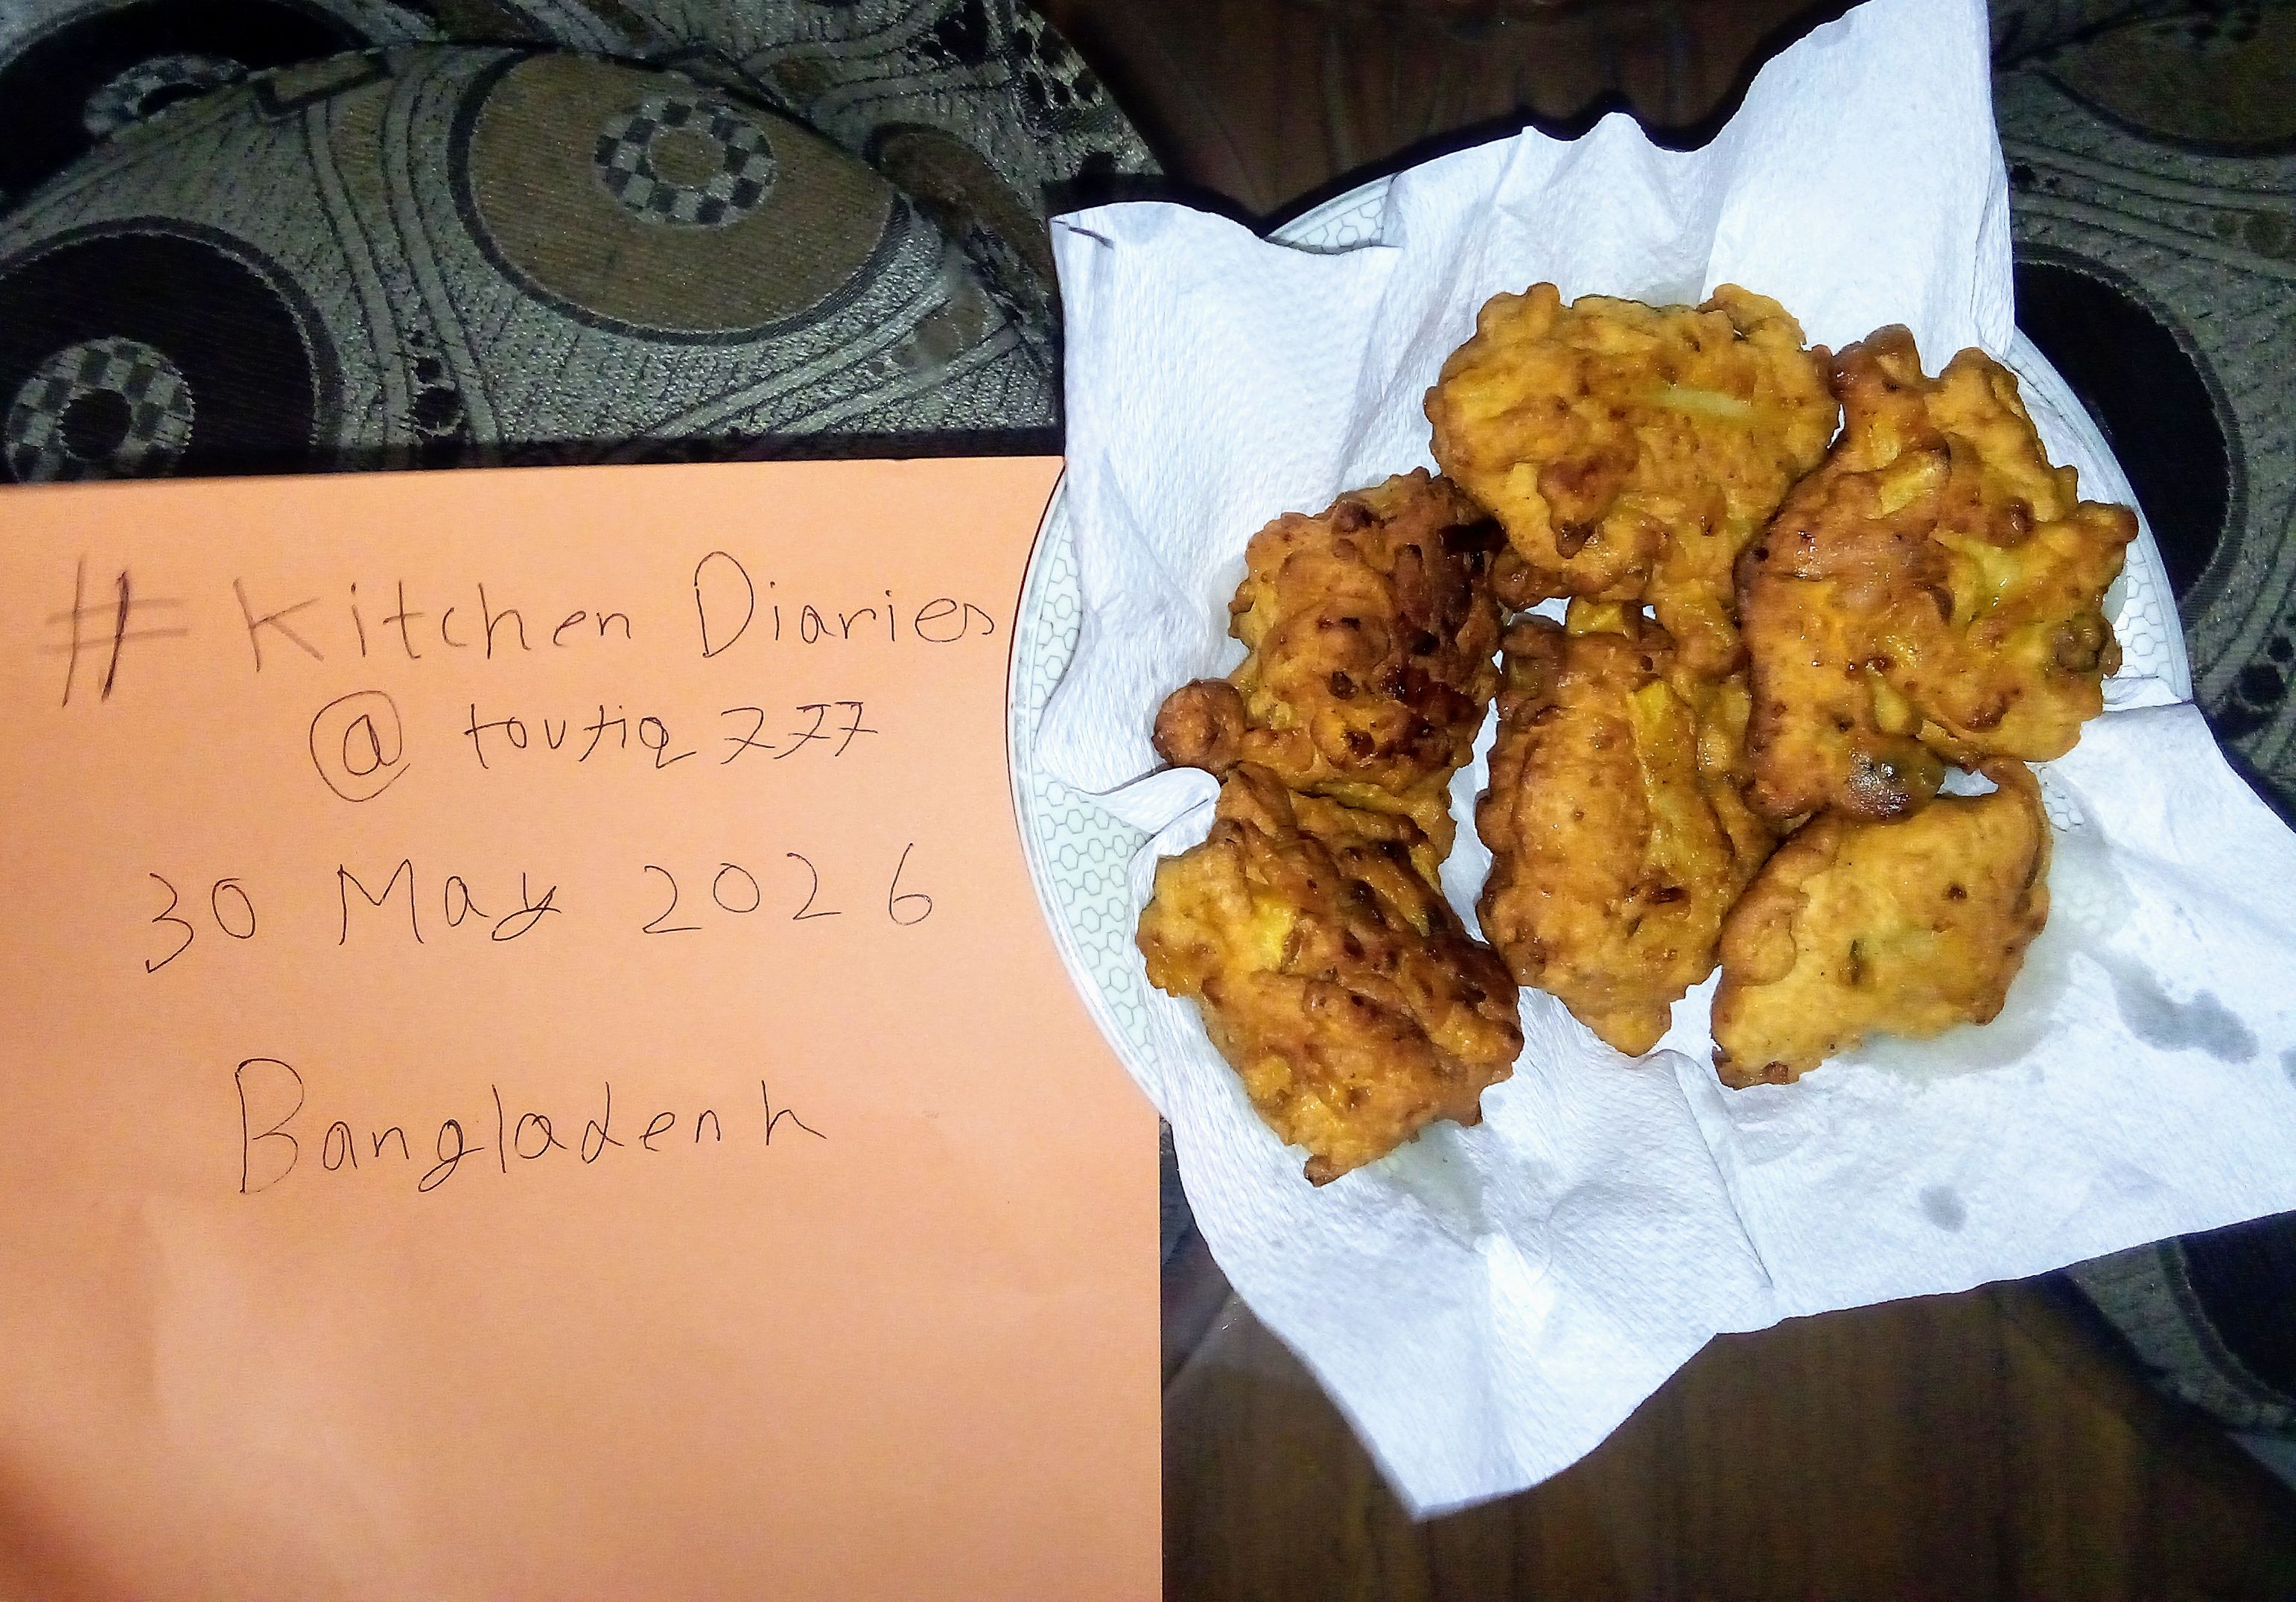 # Kitchen Diaries
@toufiq777
30 May 2026
Bangladesh